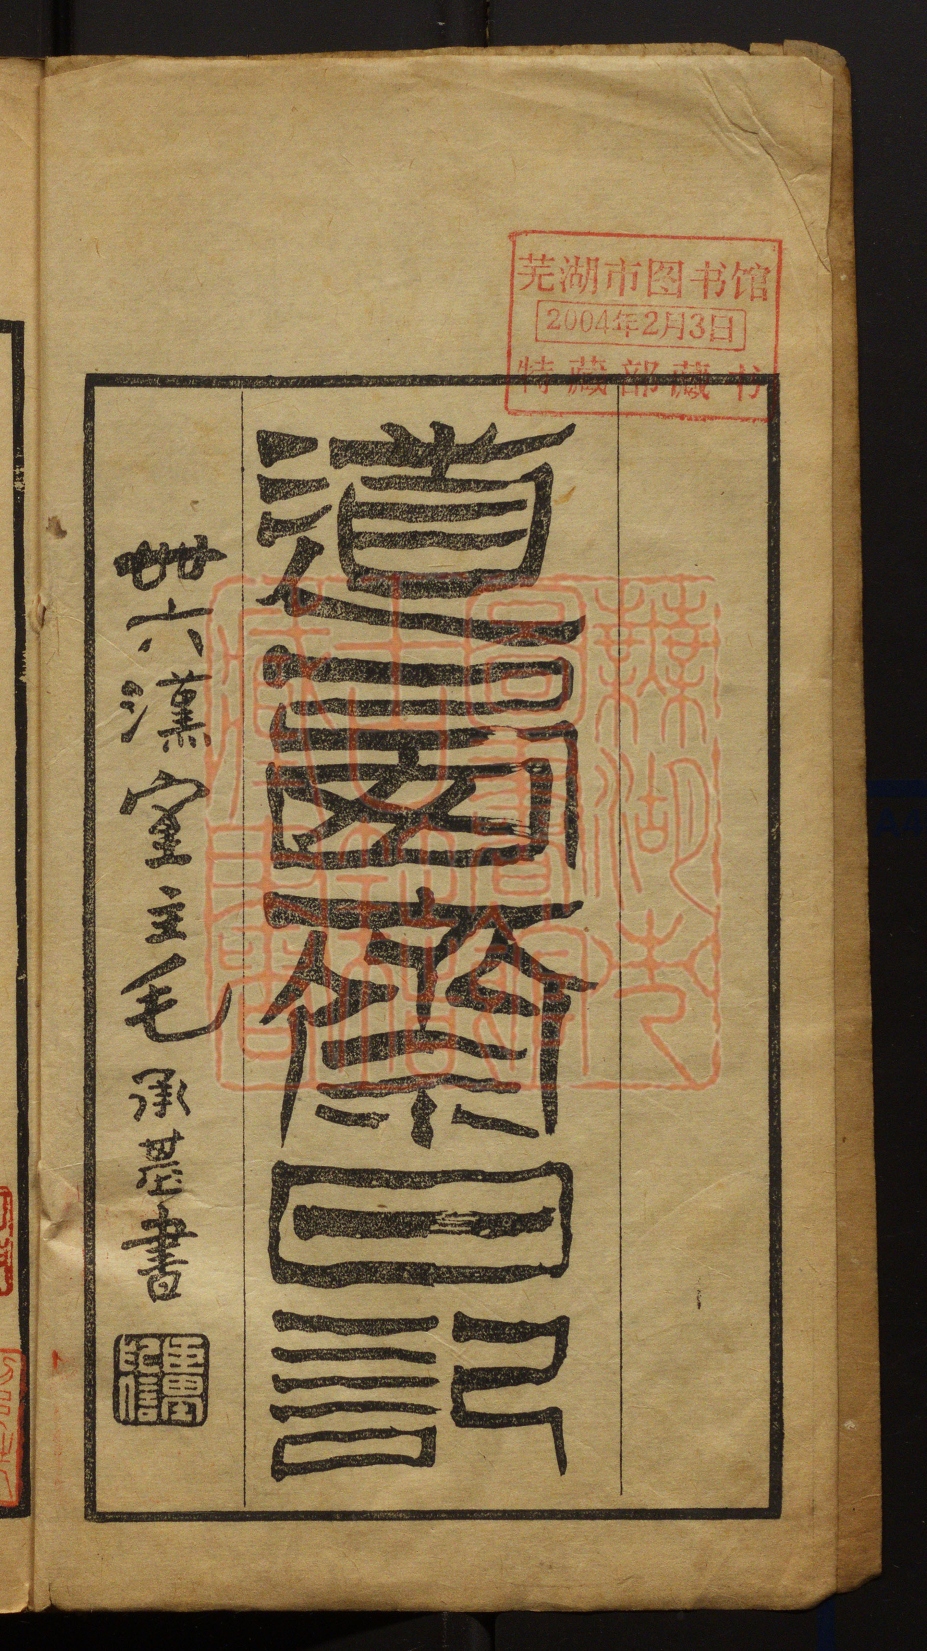 芜湖市图书馆
2004年2月3日
特藏部藏书
道西齋日記
卅六漢室主毛承基書
蕪湖市
圖書館